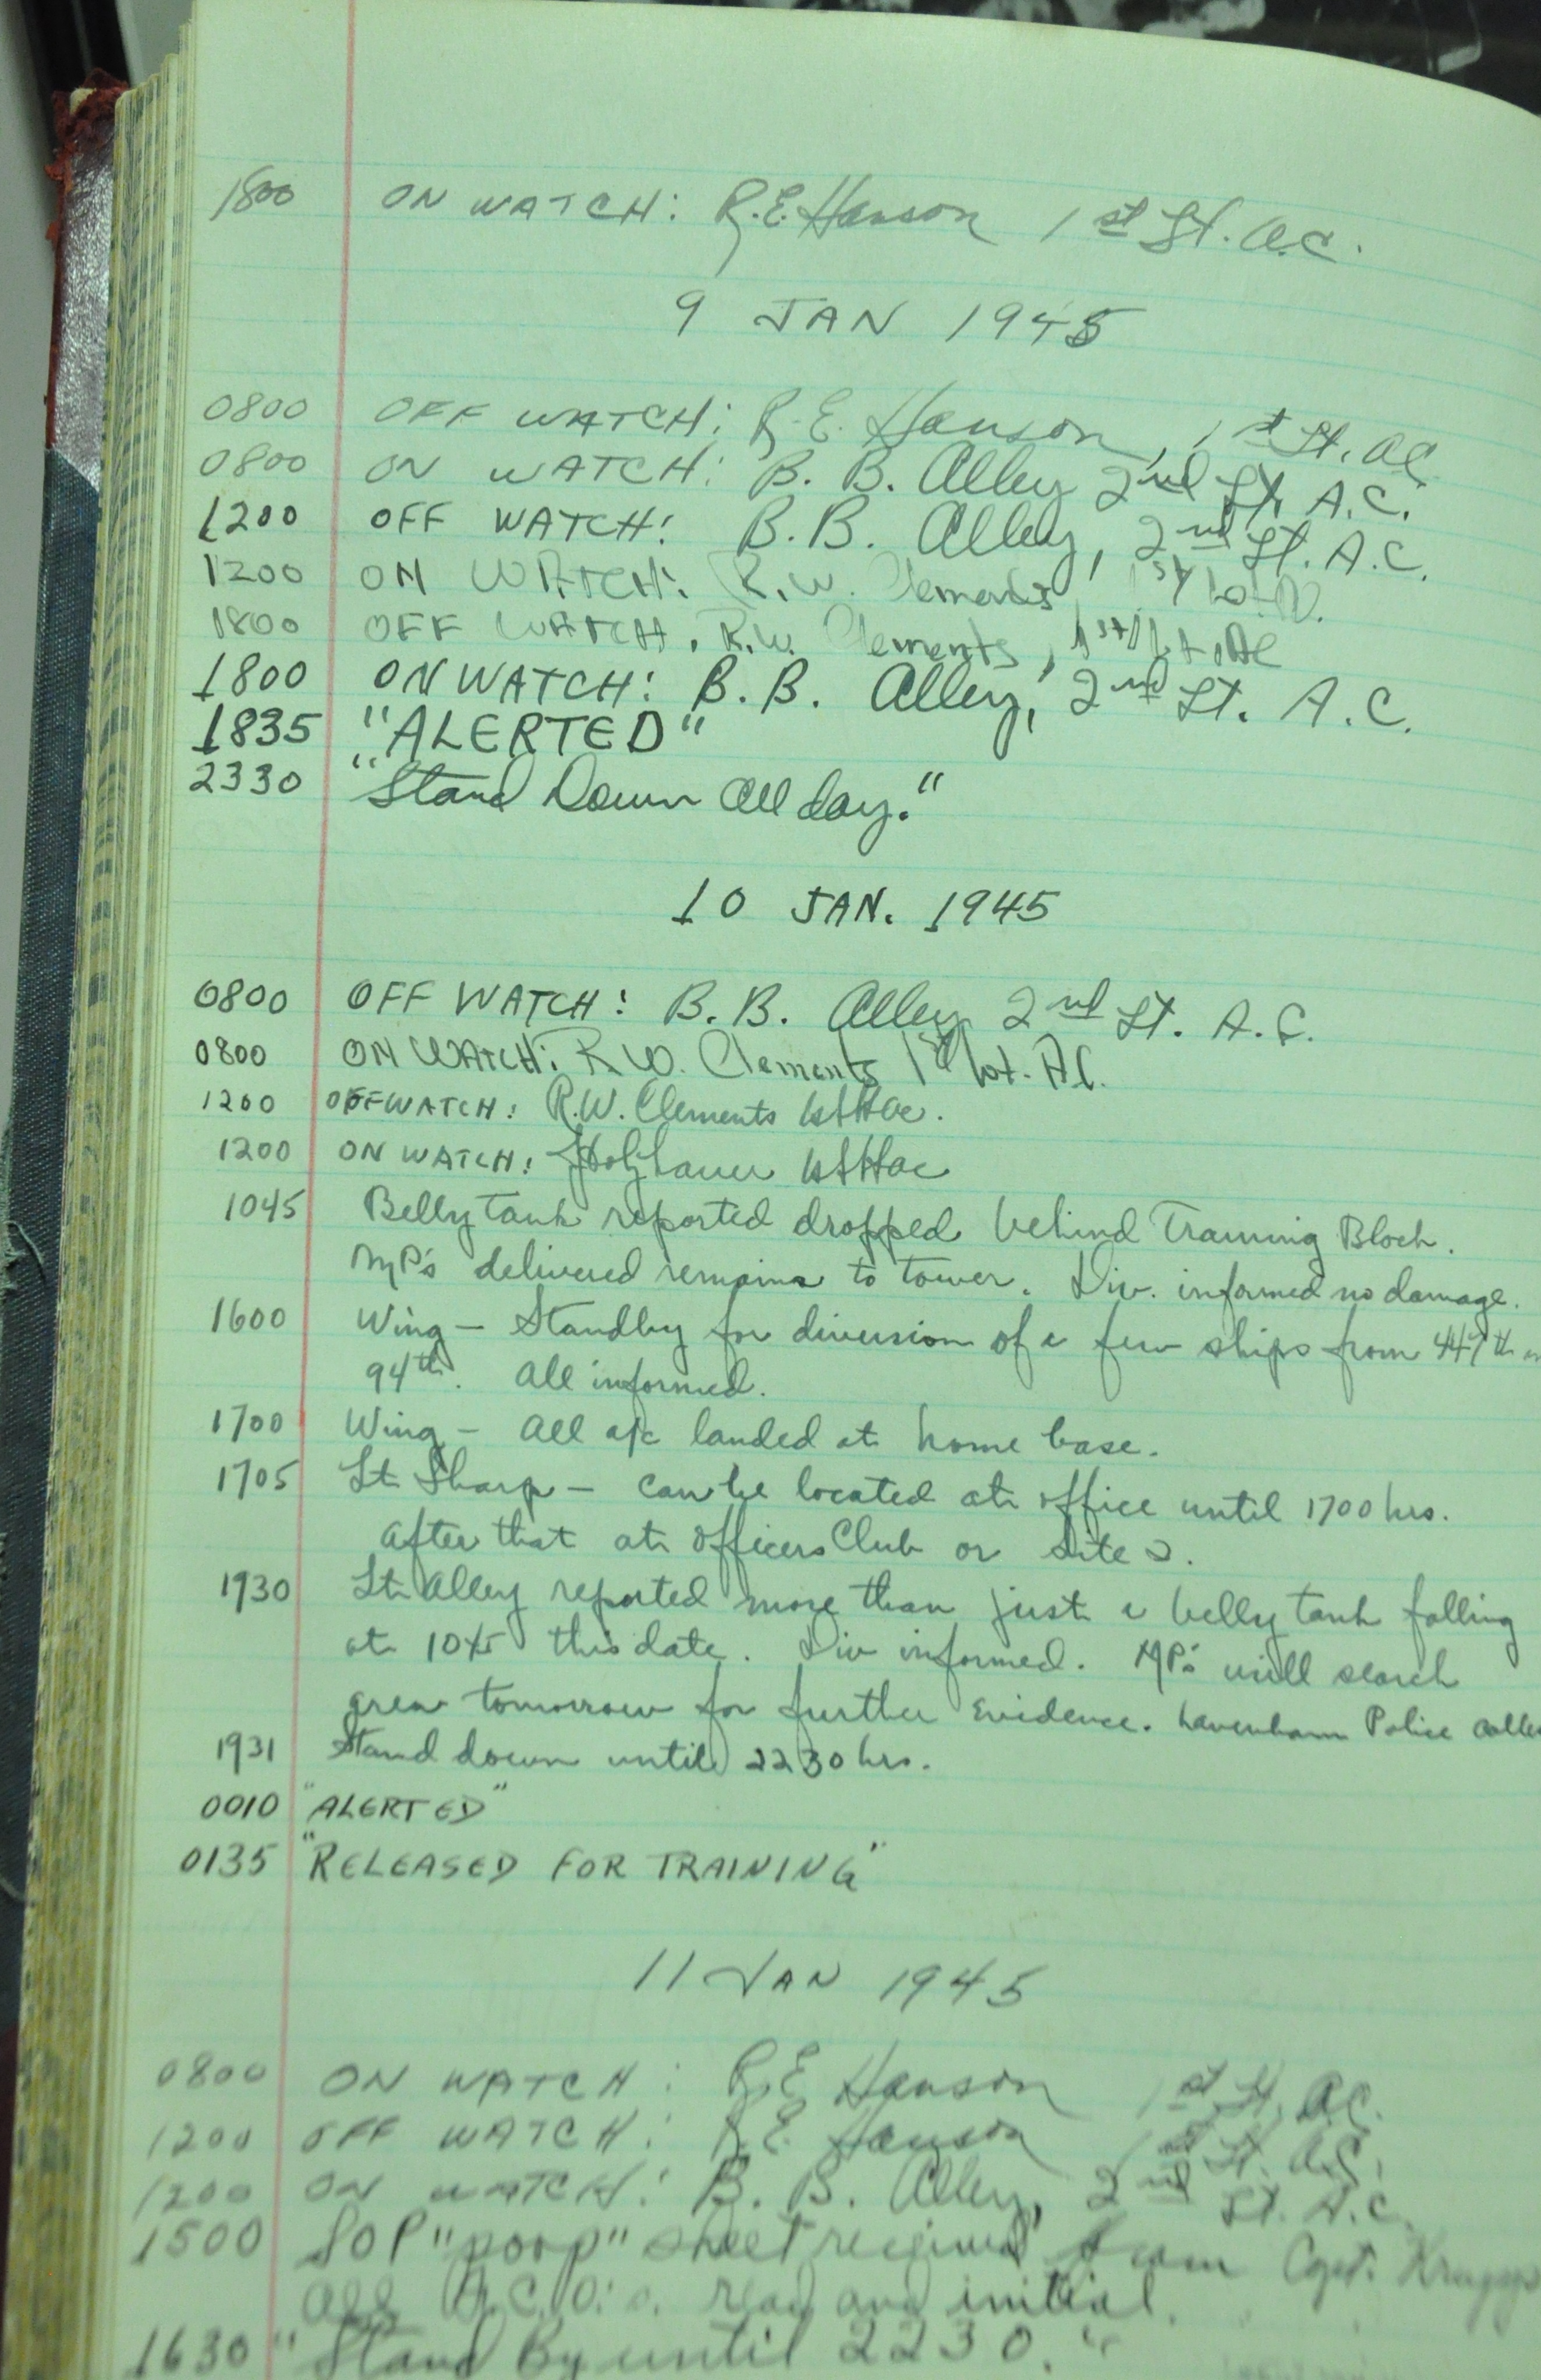 1800 ON WATCH: R.E. Hanson 1st Lt. A.C.
9 JAN 1945
0800 OFF WATCH: R.E. Hanson, 1st Lt. AC
0800 ON WATCH: B. B. Alley 2nd Lt. A.C.
1200 OFF WATCH: B.B. Alley, 2nd Lt. A.C.
1200 ON WATCH: R.W. Clements 1st
1800 OFF WATCH. R.W. Clements, 1st Lt AC
1800 ON WATCH: B.B. Alley, 2nd Lt. A.C.
1835 "ALERTED"
2330 "Stand Down All day."
10 JAN. 1945
0800 OFF WATCH: B.B. Alley 2nd Lt. A.C.
0800 ON WATCH: R W. Clements 1st Lt. AC.
1200 OFF WATCH: R.W. Clements 1st Lt ac.
1200 ON WATCH: 1st Lt ac
1045 Belly tank reported dropped behind Training Block.
MP's delivered remains to tower. Div. informed no damage.
1600 Wing - Standby for diversion of a few ships from 447th
94th. All informed.
1700 Wing - All a/c landed at home base.
1705 Lt Sharp - can be located at office until 1700 hrs.
After that at Officers Club or Site 2.
1930 Lt Alley reported more than just a belly tank falling
at 1045 this date. Div informed. MP's will search
area tomorrow for further evidence. Lavenham Police
1931 Stand down until 2230 hrs.
0010 "ALERTED"
0135 "RELEASED FOR TRAINING"
11 JAN 1945
0800 ON WATCH: R.E Hanson 1st Lt. AC.
1200 OFF WATCH: R.E. Hanson 1st Lt. A.C.
1200 ON WATCH: B. B. Alley, 2nd Lt. A.C.
1500 SOP "poop" sheet received from Capt.
all read and initial.
1630 "Stand By until 2230."